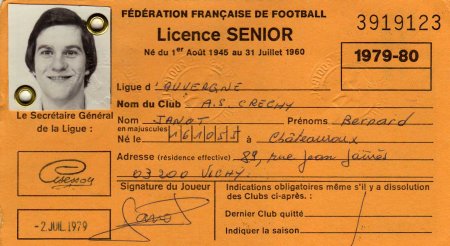 FÉDÉRATION FRANÇAISE DE FOOTBALL
3919123
Licence SENIOR
Né du 1er Août 1945 au 31 Juillet 1960
1979-80
Ligue d'AUVERGNE
Nom du Club : A.S. CRECHY
Le Secrétaire Général
de la Ligue :
Nom JANOT Prénoms Bernard
en majuscules
Né le 161055 à Châteauroux
Adresse (résidence effective) 89, rue Jean Jaurès
03200 VICHY.
Signature du Joueur
Janot
-2 JUIL. 1979
Indications obligatoires même s'il y a dissolution
des Clubs ci-après :
Dernier Club quitté
Indiquer la saison